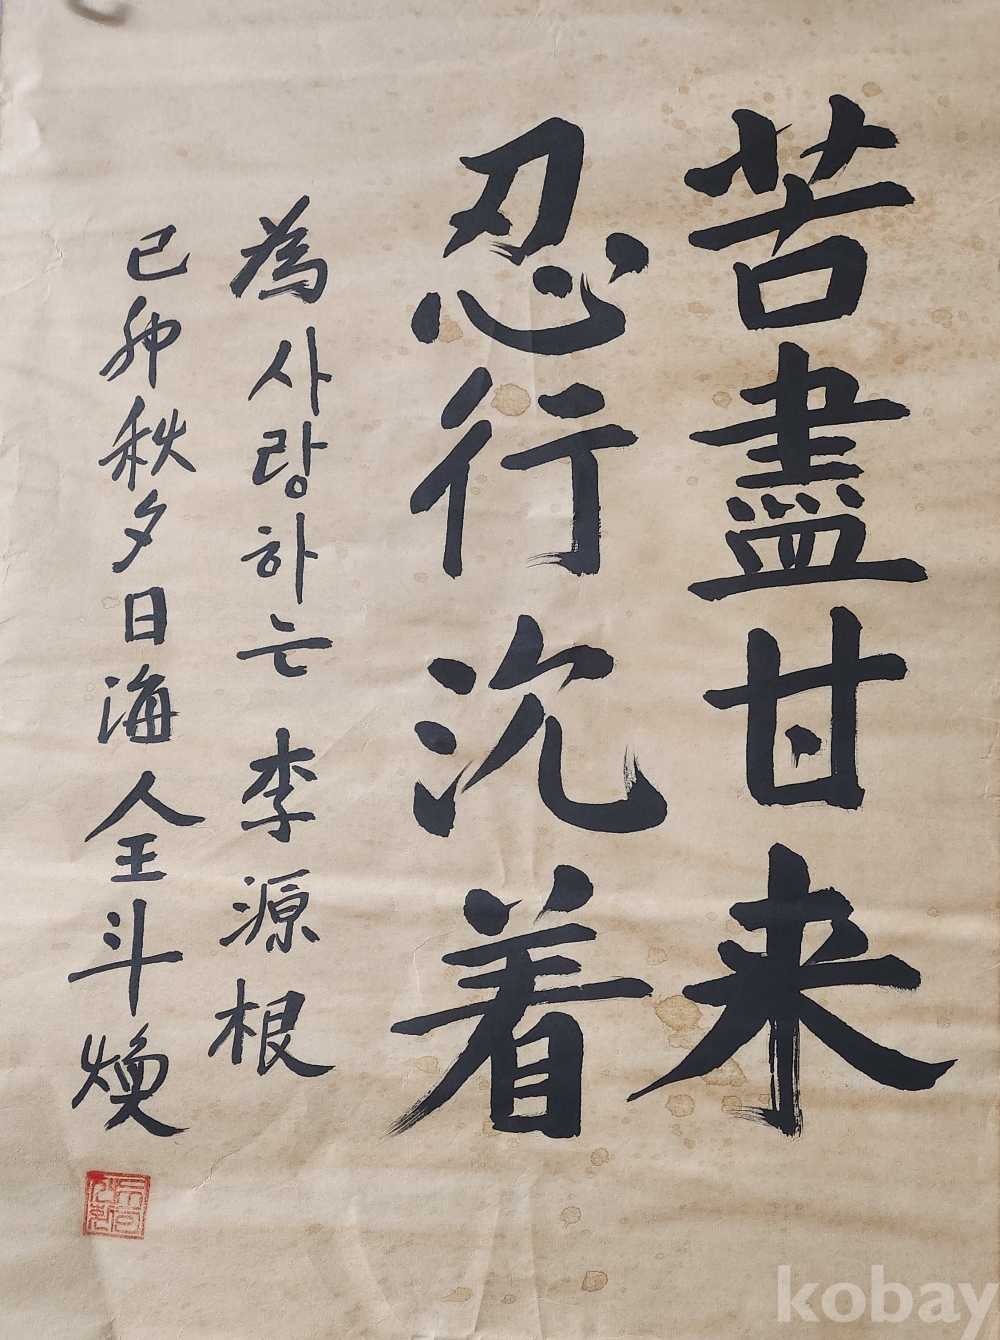 苦盡甘来
忍行沉着
為사랑하는李源根
己卯秋夕日海人全斗煥
kobay